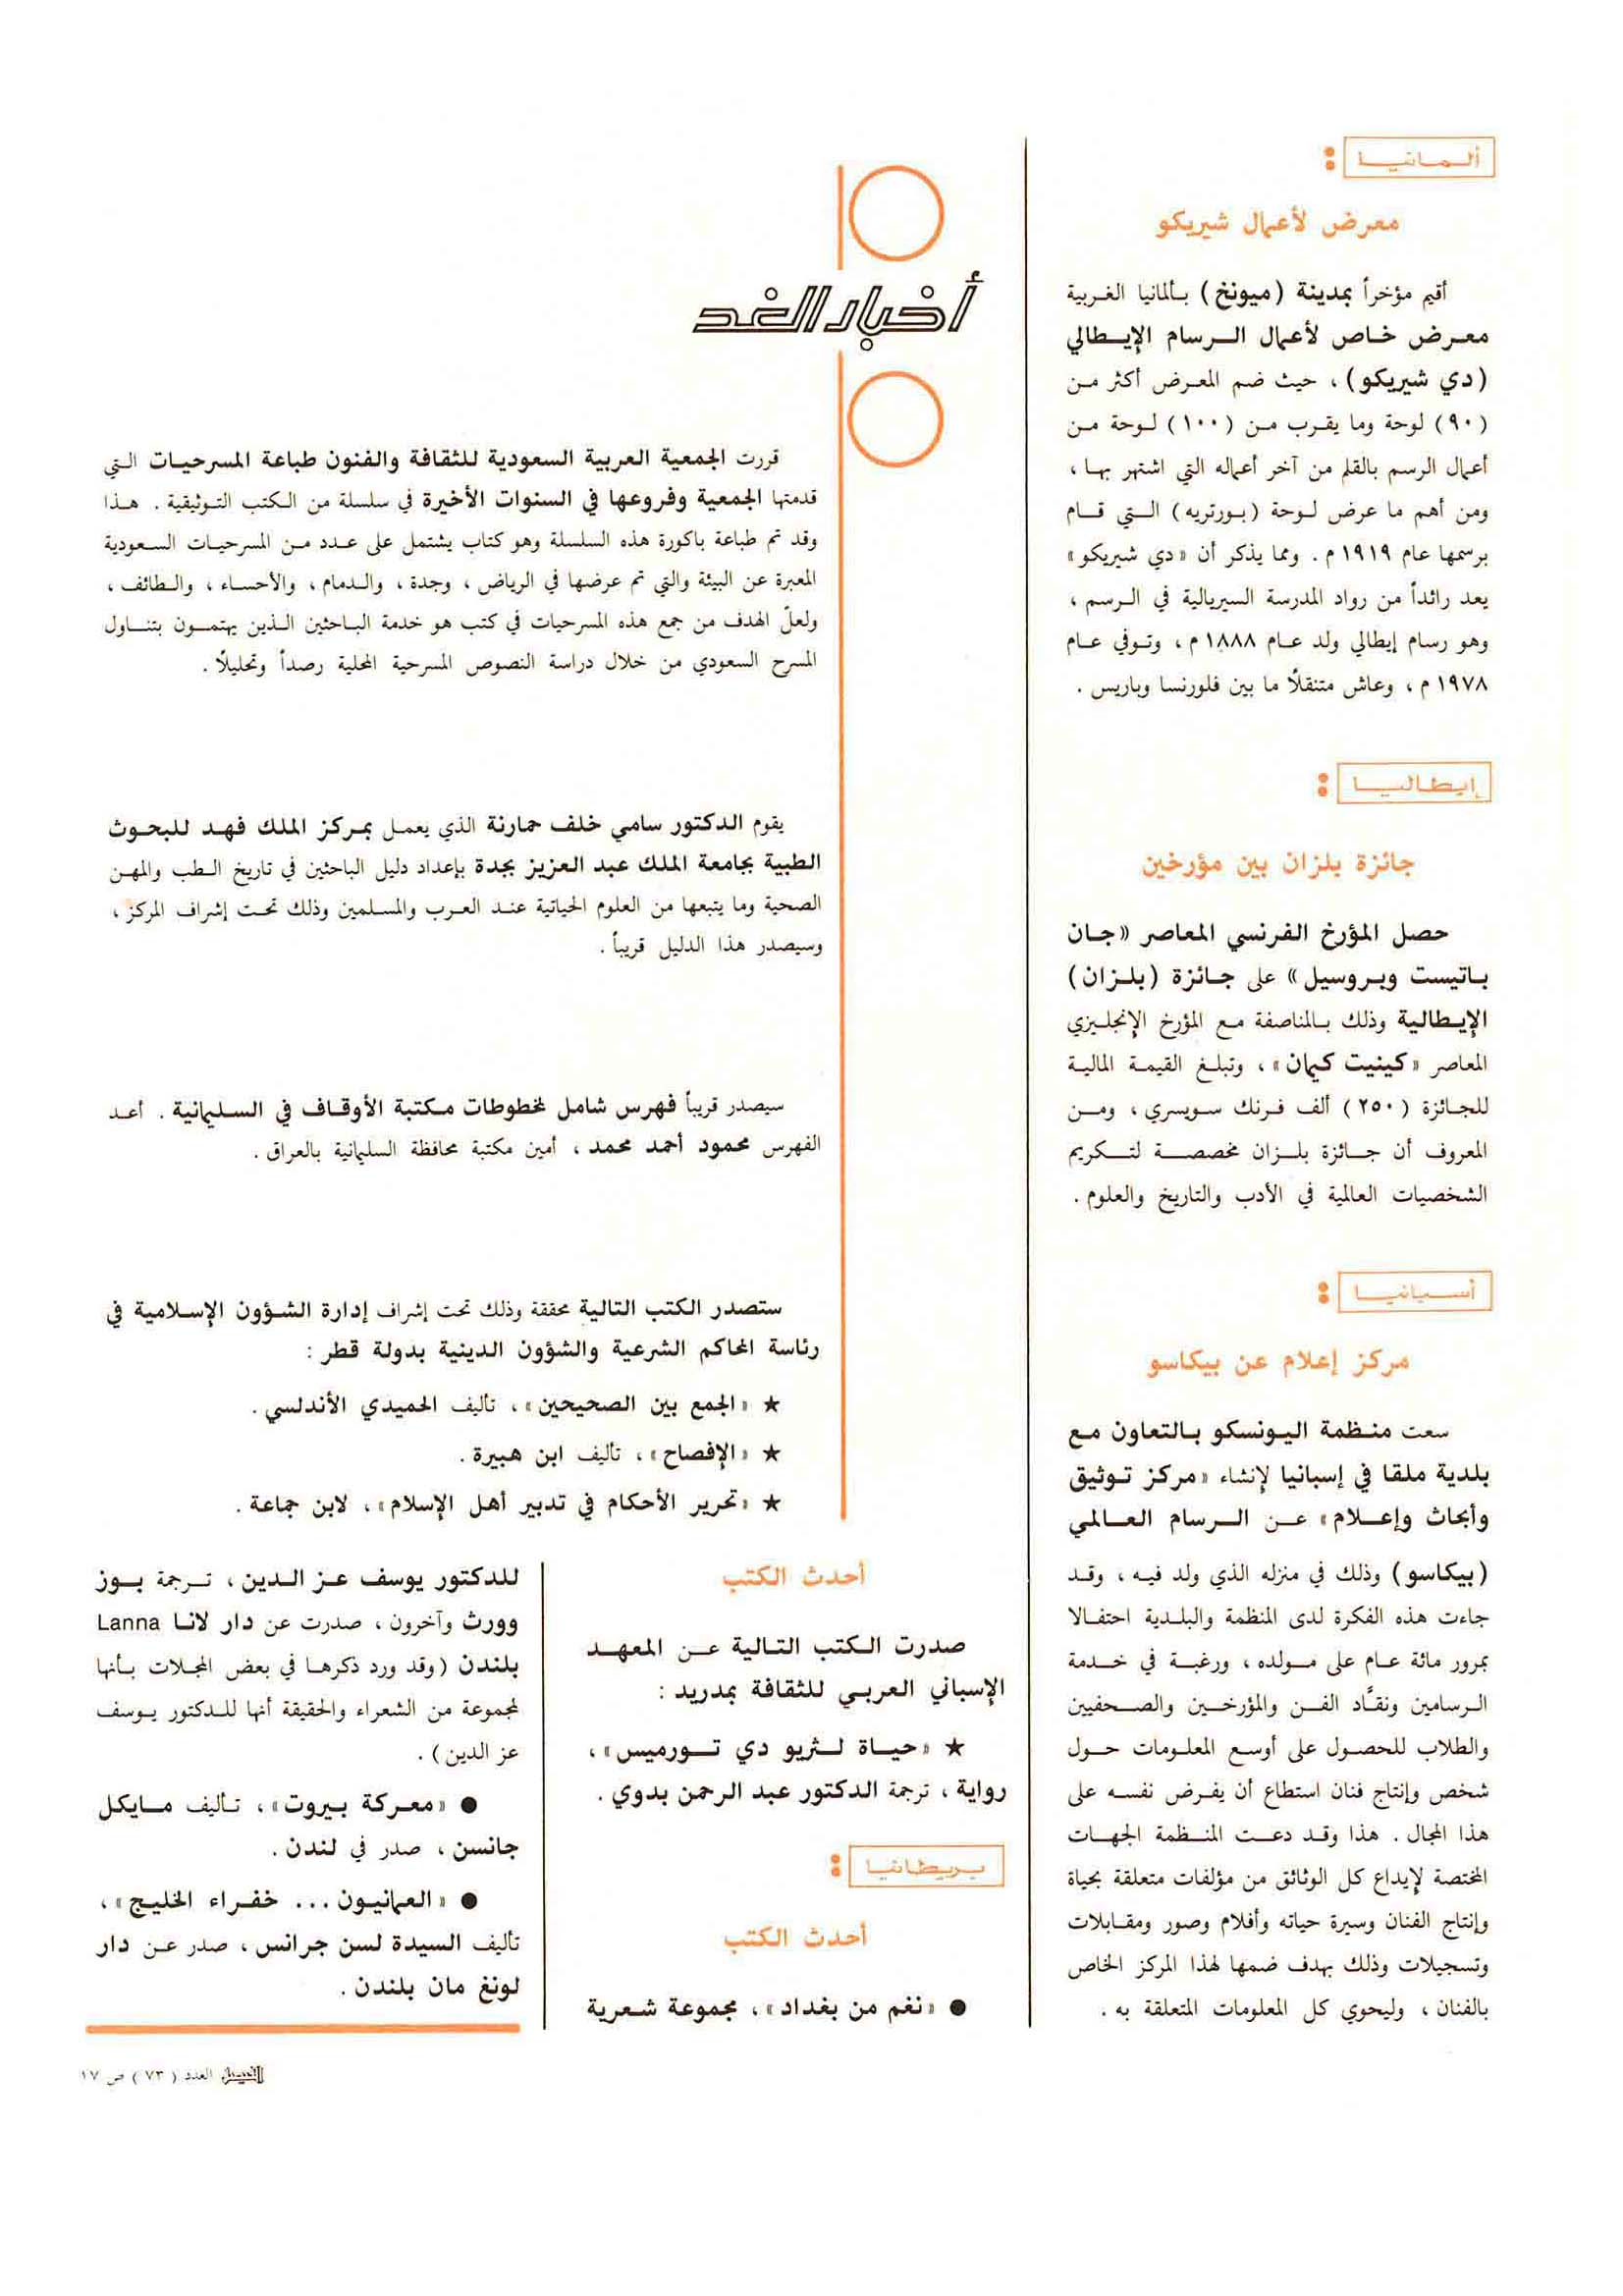 ألمانيا :
معرض لأعمال شيريكو
أقيم مؤخراً بمدينة (ميونخ) بألمانيا الغربية
معرض خاص لأعمال الرسام الإيطالي
(دي شيريكو) ، حيث ضم المعرض أكثر من
(٩٠) لوحة وما يقرب من (١٠٠) لوحة من
أعمال الرسم بالقلم من آخر أعماله التي اشتهر بها ،
ومن أهم ما عرض لوحة (بورتريه) التي قام
برسمها عام ١٩١٩ م . ومما يذكر أن «دي شيريكو»
يعد رائداً من رواد المدرسة السيريالية في الرسم ،
وهو رسام إيطالي ولد عام ١٨٨٨ م ، وتوفي عام
١٩٧٨ م ، وعاش متنقلًا ما بين فلورنسا وباريس .
إيطاليا :
جائزة بلزان بين مؤرخين
حصل المؤرخ الفرنسي المعاصر «جان
باتيست وبروسيل» على جائزة (بلزان)
الإيطالية وذلك بالمناصفة مع المؤرخ الإنجليزي
المعاصر «كينيت كيمان» ، وتبلغ القيمة المالية
للجائزة (٢٥٠) ألف فرنك سويسري ، ومن
المعروف أن جائزة بلزان مخصصة لتكريم
الشخصيات العالمية في الأدب والتاريخ والعلوم .
أسبانيا :
مركز إعلام عن بيكاسو
سعت منظمة اليونسكو بالتعاون مع
بلدية ملقا في إسبانيا لإنشاء «مركز توثيق
وأبحاث وإعلام» عن الرسام العالمي
(بيكاسو) وذلك في منزله الذي ولد فيه ، وقد
جاءت هذه الفكرة لدى المنظمة والبلدية احتفالا
بمرور مائة عام على مولده ، ورغبة في خدمة
الرسامين ونقّاد الفن والمؤرخين والصحفيين
والطلاب للحصول على أوسع المعلومات حول
شخص وإنتاج فنان استطاع أن يفرض نفسه على
هذا المجال . هذا وقد دعت المنظمة الجهات
المختصة لإيداع كل الوثائق من مؤلفات متعلقة بحياة
وإنتاج الفنان وسيرة حياته وأفلام وصور ومقابلات
وتسجيلات وذلك بهدف ضمها لهذا المركز الخاص
بالفنان ، وليحوي كل المعلومات المتعلقة به .
أخبار الغد
قررت الجمعية العربية السعودية للثقافة والفنون طباعة المسرحيات التي
قدمتها الجمعية وفروعها في السنوات الأخيرة في سلسلة من الكتب التوثيقية . هذا
وقد تم طباعة باكورة هذه السلسلة وهو كتاب يشتمل على عدد من المسرحيات السعودية
المعبرة عن البيئة والتي تم عرضها في الرياض ، وجدة ، والدمام ، والأحساء ، والطائف ،
ولعلّ الهدف من جمع هذه المسرحيات في كتب هو خدمة الباحثين الذين يهتمون بتناول
المسرح السعودي من خلال دراسة النصوص المسرحية المحلية رصداً وتحليلًا .
يقوم الدكتور سامي خلف حمارنة الذي يعمل بمركز الملك فهد للبحوث
الطبية بجامعة الملك عبد العزيز بجدة بإعداد دليل الباحثين في تاريخ الطب والمهن
الصحية وما يتبعها من العلوم الحياتية عند العرب والمسلمين وذلك تحت إشراف المركز ،
وسيصدر هذا الدليل قريباً .
سيصدر قريباً فهرس شامل لمخطوطات مكتبة الأوقاف في السليمانية . أعد
الفهرس محمود أحمد محمد ، أمين مكتبة محافظة السليمانية بالعراق .
ستصدر الكتب التالية محققة وذلك تحت إشراف إدارة الشؤون الإسلامية في
رئاسة المحاكم الشرعية والشؤون الدينية بدولة قطر :
★ «الجمع بين الصحيحين» ، تأليف الحميدي الأندلسي .
★ «الإفصاح» ، تأليف ابن هبيرة .
★ «تحرير الأحكام في تدبير أهل الإسلام» ، لابن جماعة .
أحدث الكتب
صدرت الكتب التالية عن المعهد
الإسباني العربي للثقافة بمدريد :
★ «حياة لثريو دي تورميس» ،
رواية ، ترجمة الدكتور عبد الرحمن بدوي .
بريطانيا :
أحدث الكتب
● «نغم من بغداد» ، مجموعة شعرية
للدكتور يوسف عز الدين ، ترجمة بوز
وورث وآخرون ، صدرت عن دار لانا Lanna
بلندن (وقد ورد ذكرها في بعض المجلات بأنها
لمجموعة من الشعراء والحقيقة أنها للدكتور يوسف
عز الدين) .
● «معركة بيروت» ، تأليف مايكل
جانسن ، صدر في لندن .
● «العمانيون ... خفراء الخليج» ،
تأليف السيدة لسن جرانس ، صدر عن دار
لونغ مان بلندن .
الفيصل العدد (٧٣) ص ١٧